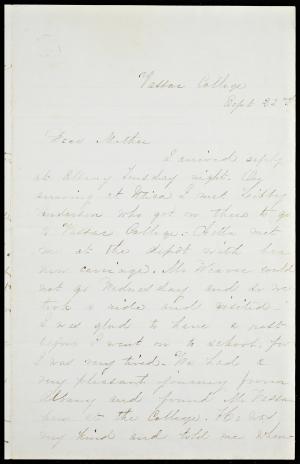 Vassar College
Sept 22nd
Dear Mother
I arrived safely
at Albany Tuesday night. On
arriving at Utica I met Libby
Anderson who got on there to go
to Vassar College. Stella met
me at the depot with her
new carriage. Mr Weaver could
not go Wednesday and so we
took a ride and visited.
I was glad to have a rest
before I went on to school, for
I was very tired. We had a
very pleasant journey from
Albany and found Mr Vassar
here at the College. He was
very kind and told me when